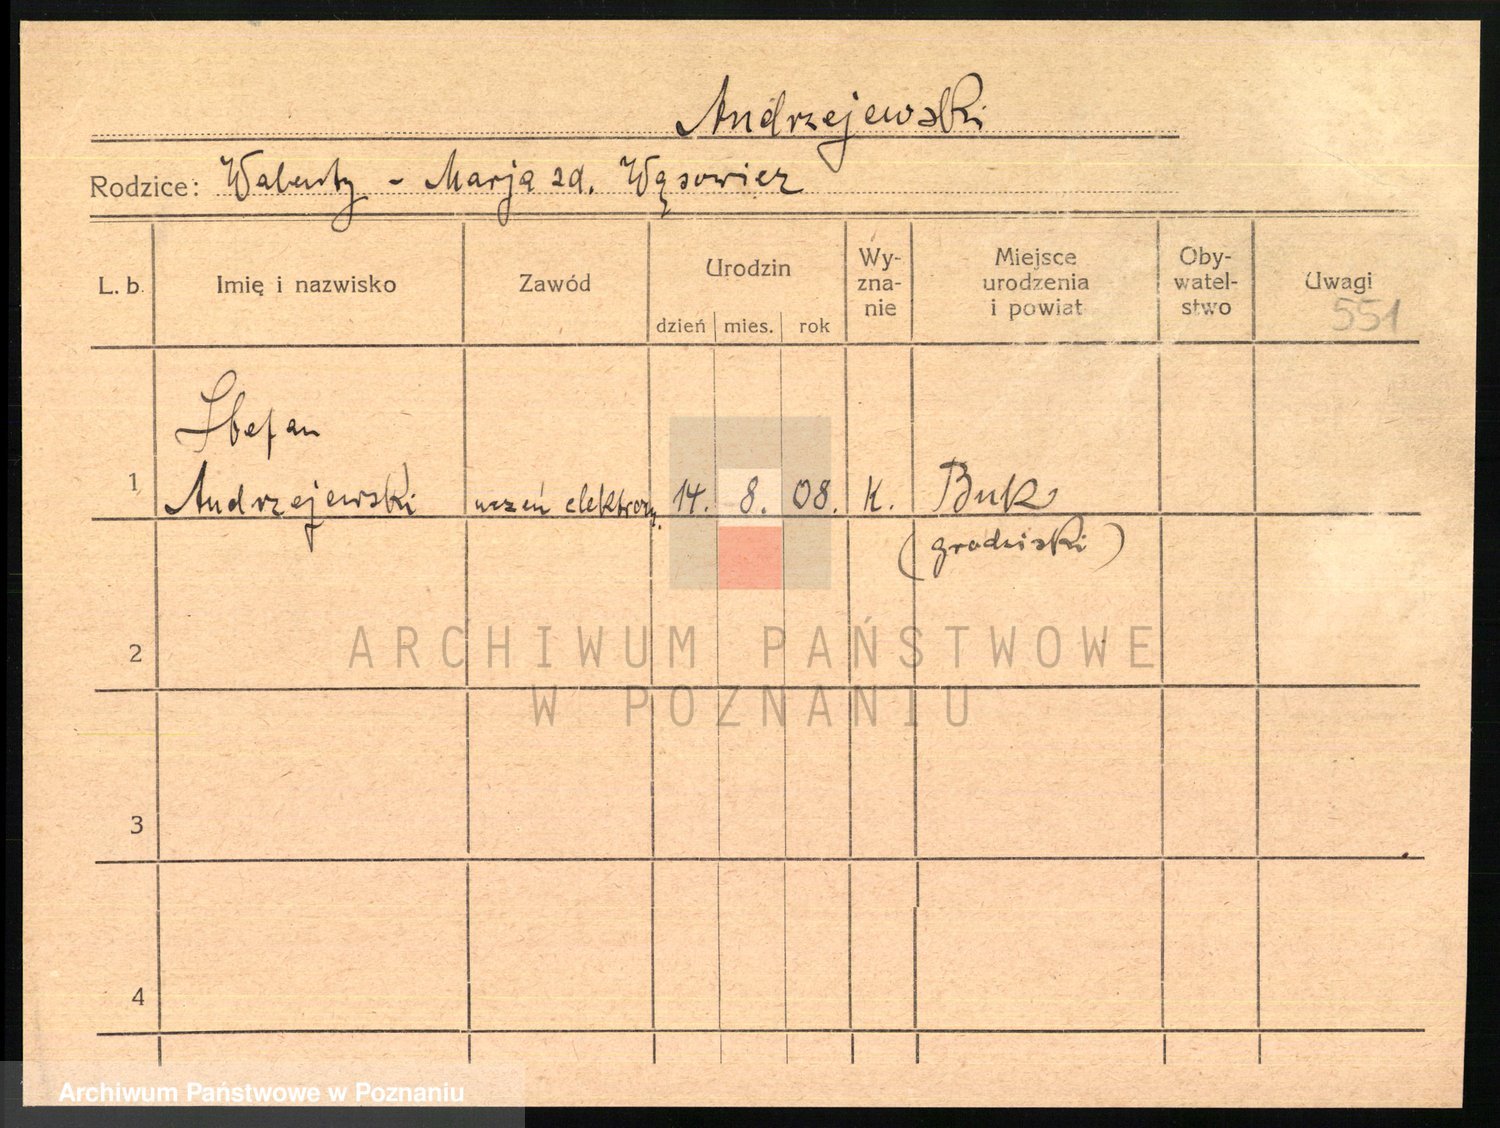 Andrzejewski
Rodzice: Walenty - Marja zd. Wąsowicz
L. b. Imię i nazwisko Zawód Urodzin dzień mies. rok Wy-zna-nie Miejsce urodzenia i powiat Oby-watel-stwo Uwagi
551
Stefan
1 Andrzejewski uczeń elektrozy. 14. 8. 08. K. Buk
(grodziski)
2
ARCHIWUM PAŃSTWOWE
W POZNANIU
3
4
Archiwum Państwowe w Poznaniu